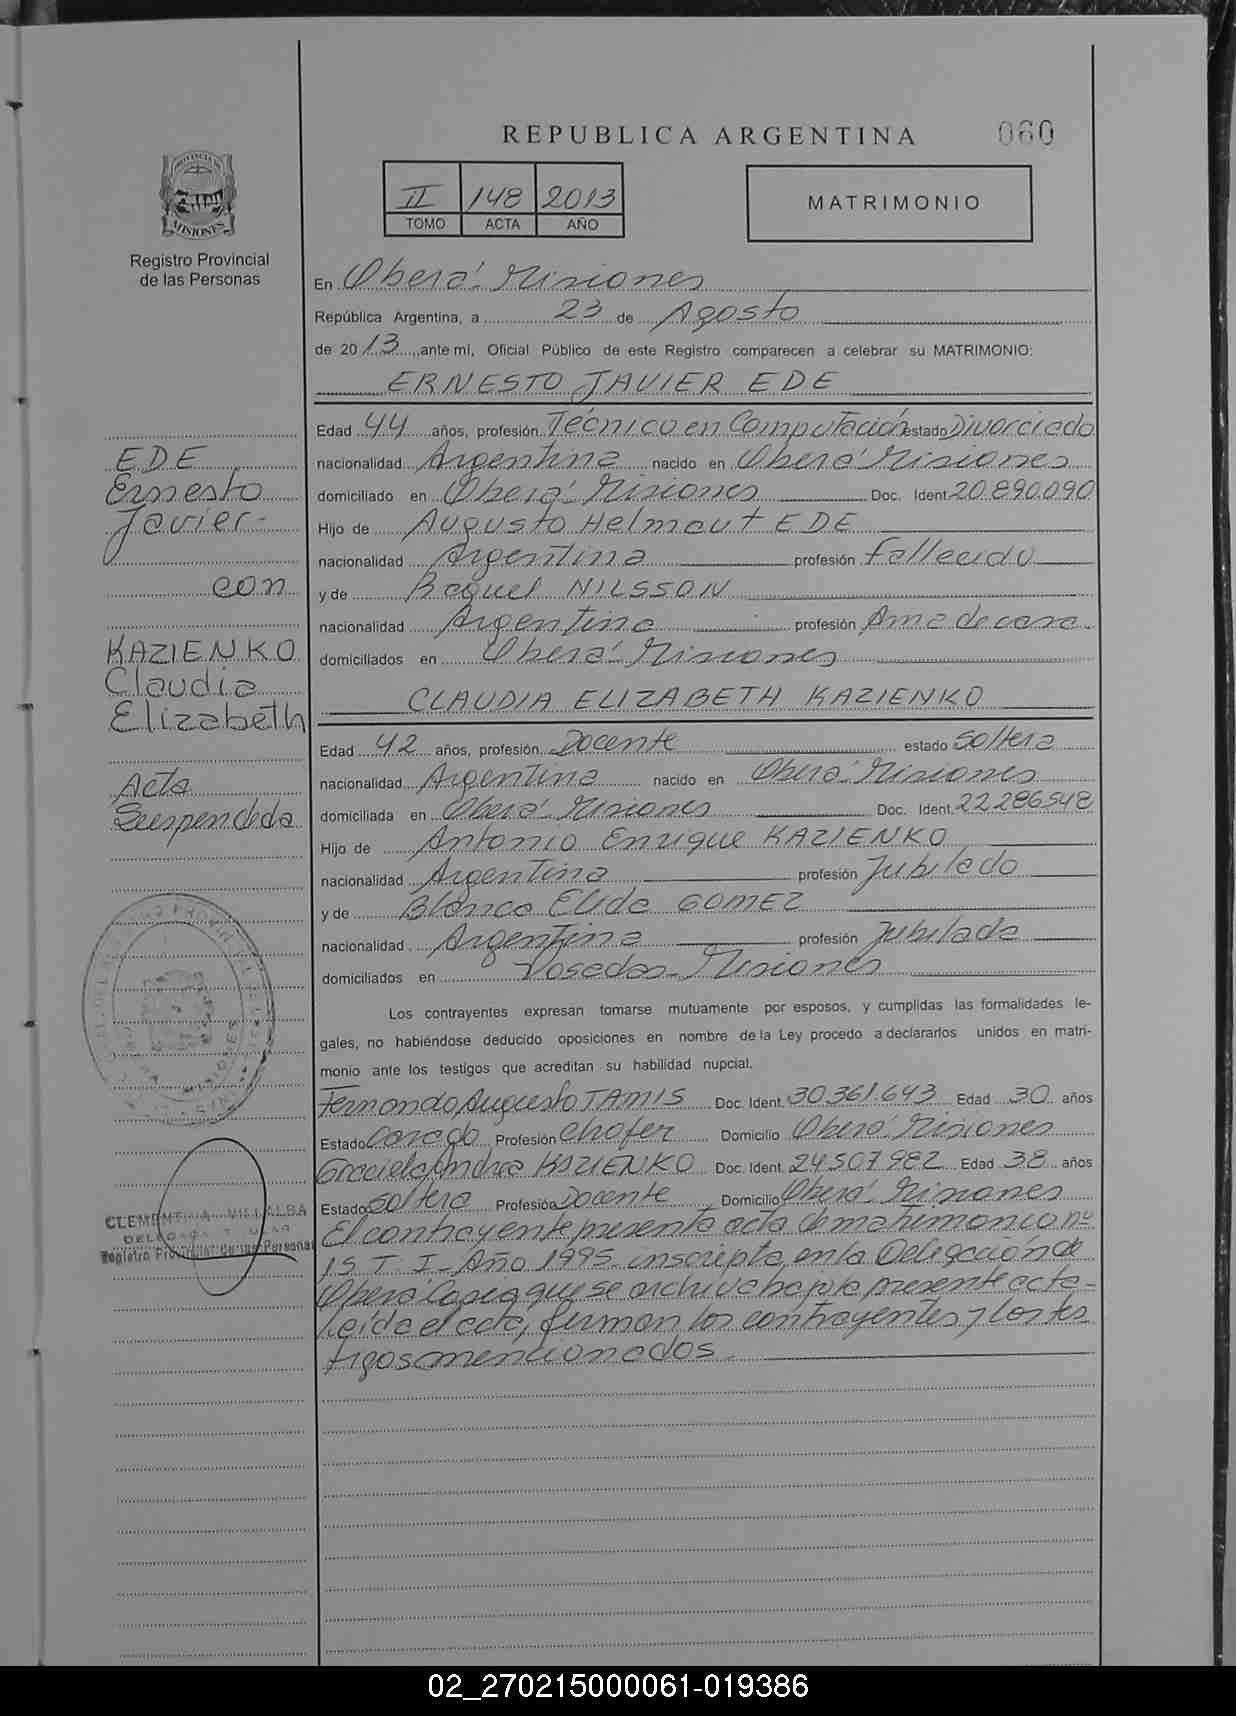 REPUBLICA ARGENTINA
060
II 148 2013
TOMO ACTA AÑO
MATRIMONIO
PROVINCIA DE
MISIONES
Registro Provincial
de las Personas
En Oberá - Misiones
República Argentina, a 23 de Agosto
de 2013, ante mí, Oficial Público de este Registro comparecen a celebrar su MATRIMONIO:
ERNESTO JAVIER EDE
Edad 44 años, profesión Técnico en Computación estado Divorciado
nacionalidad Argentina nacido en Oberá Misiones
domiciliado en Oberá - Misiones Doc. Ident. 20.890.090
Hijo de Augusto Helmaut EDE
nacionalidad Argentina profesión Fallecido
y de Raquel NILSSON
nacionalidad Argentina profesión Ama de casa.
domiciliados en Oberá - Misiones
CLAUDIA ELIZABETH KAZIENKO
Edad 42 años, profesión Docente estado Soltera
nacionalidad Argentina nacido en Oberá - Misiones
domiciliada en Oberá - Misiones Doc. Ident. 22.286.548
Hijo de Antonio Enrique KAZIENKO
nacionalidad Argentina profesión Jubilado
y de Blanca Elida GOMEZ
nacionalidad Argentina profesión Jubilada
domiciliados en Posadas - Misiones
Los contrayentes expresan tomarse mutuamente por esposos, y cumplidas las formalidades le-
gales, no habiéndose deducido oposiciones en nombre de la Ley procedo a declararlos unidos en matri-
monio ante los testigos que acreditan su habilidad nupcial.
Fernando Augusto TAMIS Doc. Ident. 30.361.643 Edad 30 años
Estado Casado Profesión Chofer Domicilio Oberá - Misiones
Graciela Andrea KAZIENKO Doc. Ident. 24.507.982 Edad 38 años
Estado Soltera Profesión Docente Domicilio Oberá - Misiones
El contrayente presenta acta de matrimonio nº
15 T. I - Año 1995 - inscripta en la Delegación de
Oberá Copia que se archiva bajo la presente acta -
Leida el acta, firman los contrayentes y los tes
tigos mencionados.
EDE
Ernesto
Javier -
con
KAZIENKO
Claudia
Elizabeth
Acta
Suspendida
CLEMENTINA VILLALBA
DELEGADA TITULAR
Registro Provincial de las Personas
02_270215000061-019386